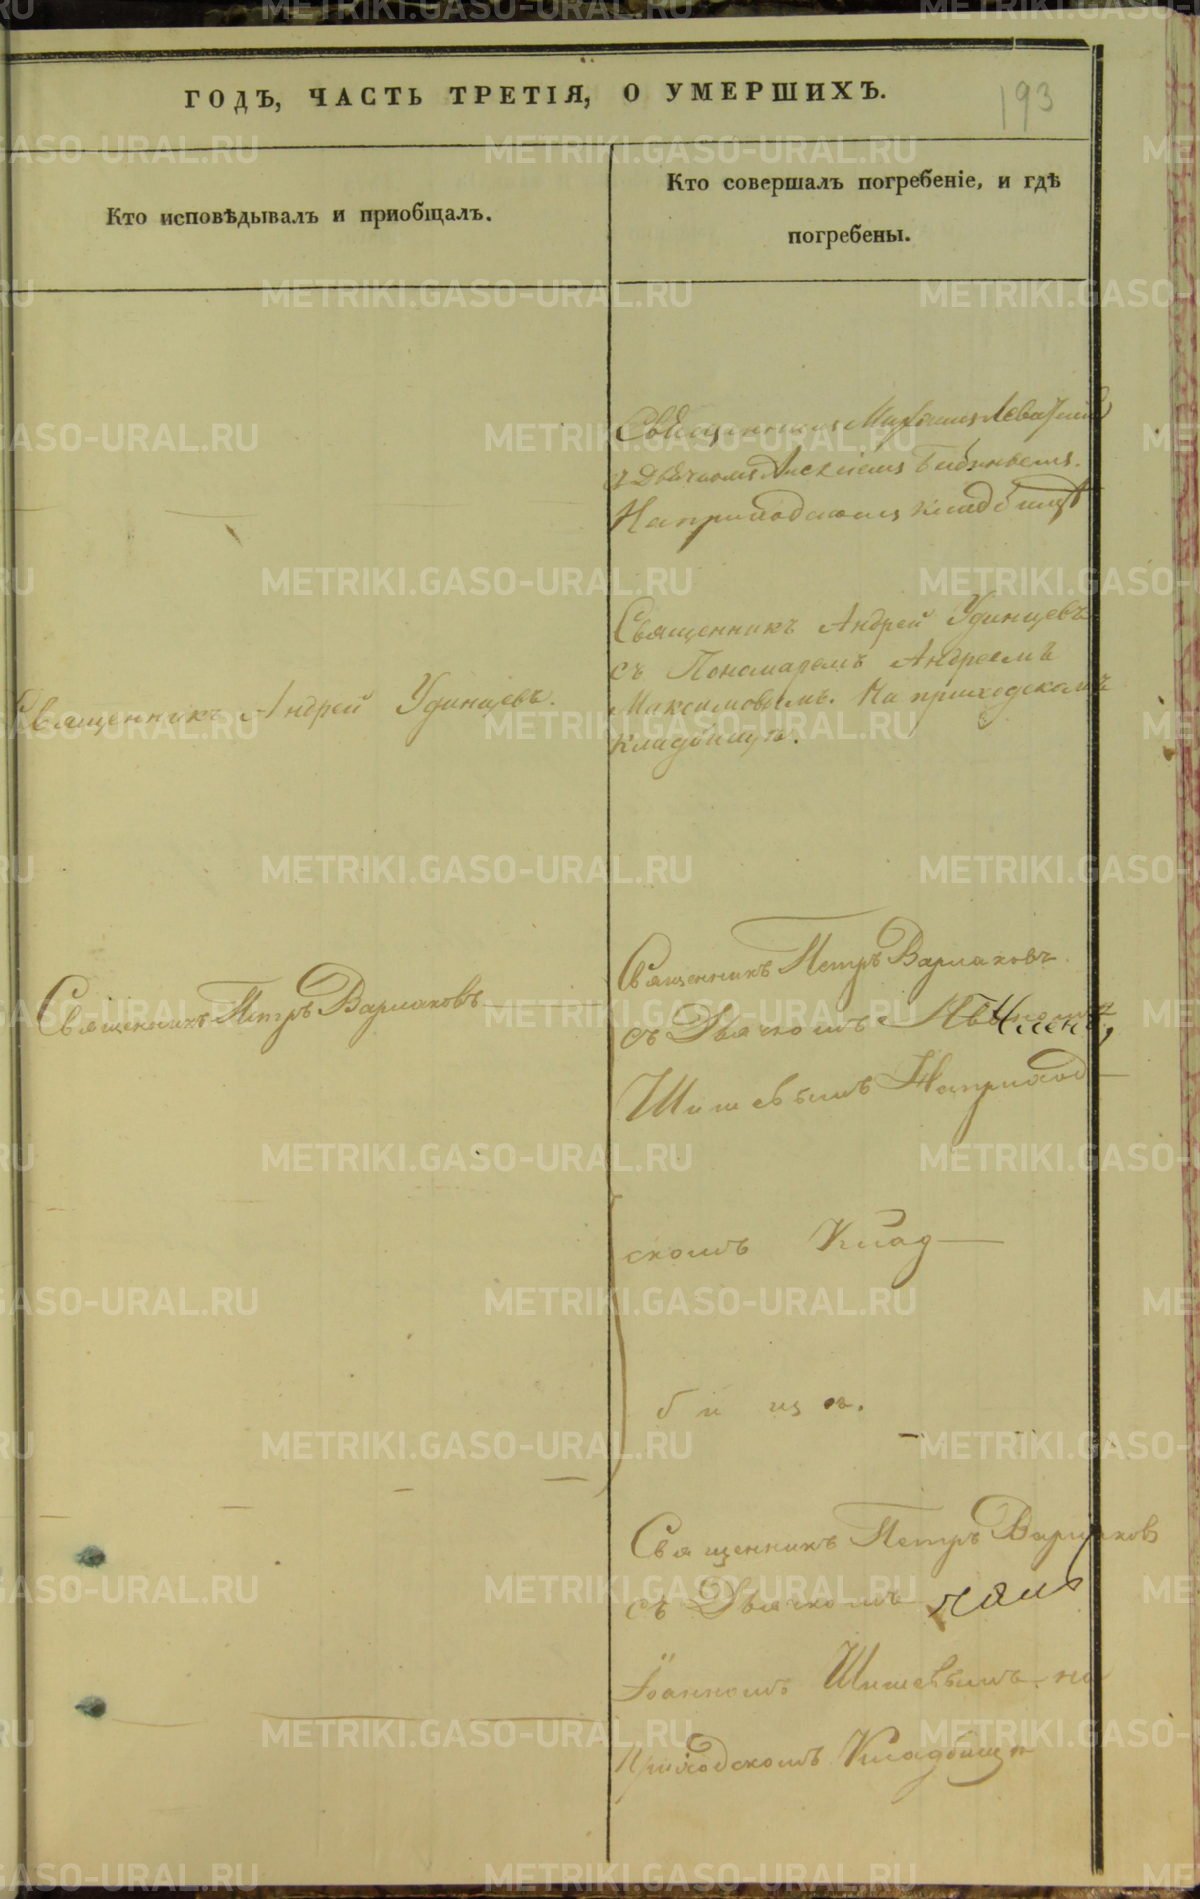 ГОДЪ, ЧАСТЬ ТРЕТІЯ, О УМЕРШИХЪ.
193
Кто исповѣдывалъ и приобщалъ.
Кто совершалъ погребеніе, и гдѣ
погребены.
Священникъ Михаилъ
съ Дьячкомъ
На приходскомъ кладбищѣ
Священникъ Андрей Удинцевъ.
Священникъ Андрей Удинцевъ
съ Пономаремъ Андреемъ
Максимовымъ. На приходскомъ
кладбищѣ.
Священникъ Петръ Варлаковъ
Священникъ Петръ Варлаковъ.
съ Дьячкомъ
Шишевымъ На приход
скомъ Клад
бищѣ.
Священникъ Петръ Варлаковъ
съ Дьячкомъ
Іоанномъ Шишевымъ на
приходскомъ Кладбищѣ
METRIKI.GASO-URAL.RU